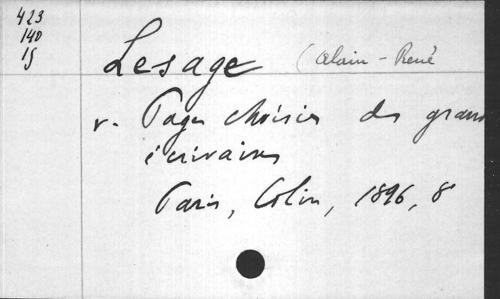 423
140
15
Lesage (Alain-René
v. Pages choisies des grans
écrivains
Paris, Colin, 1896, 8°